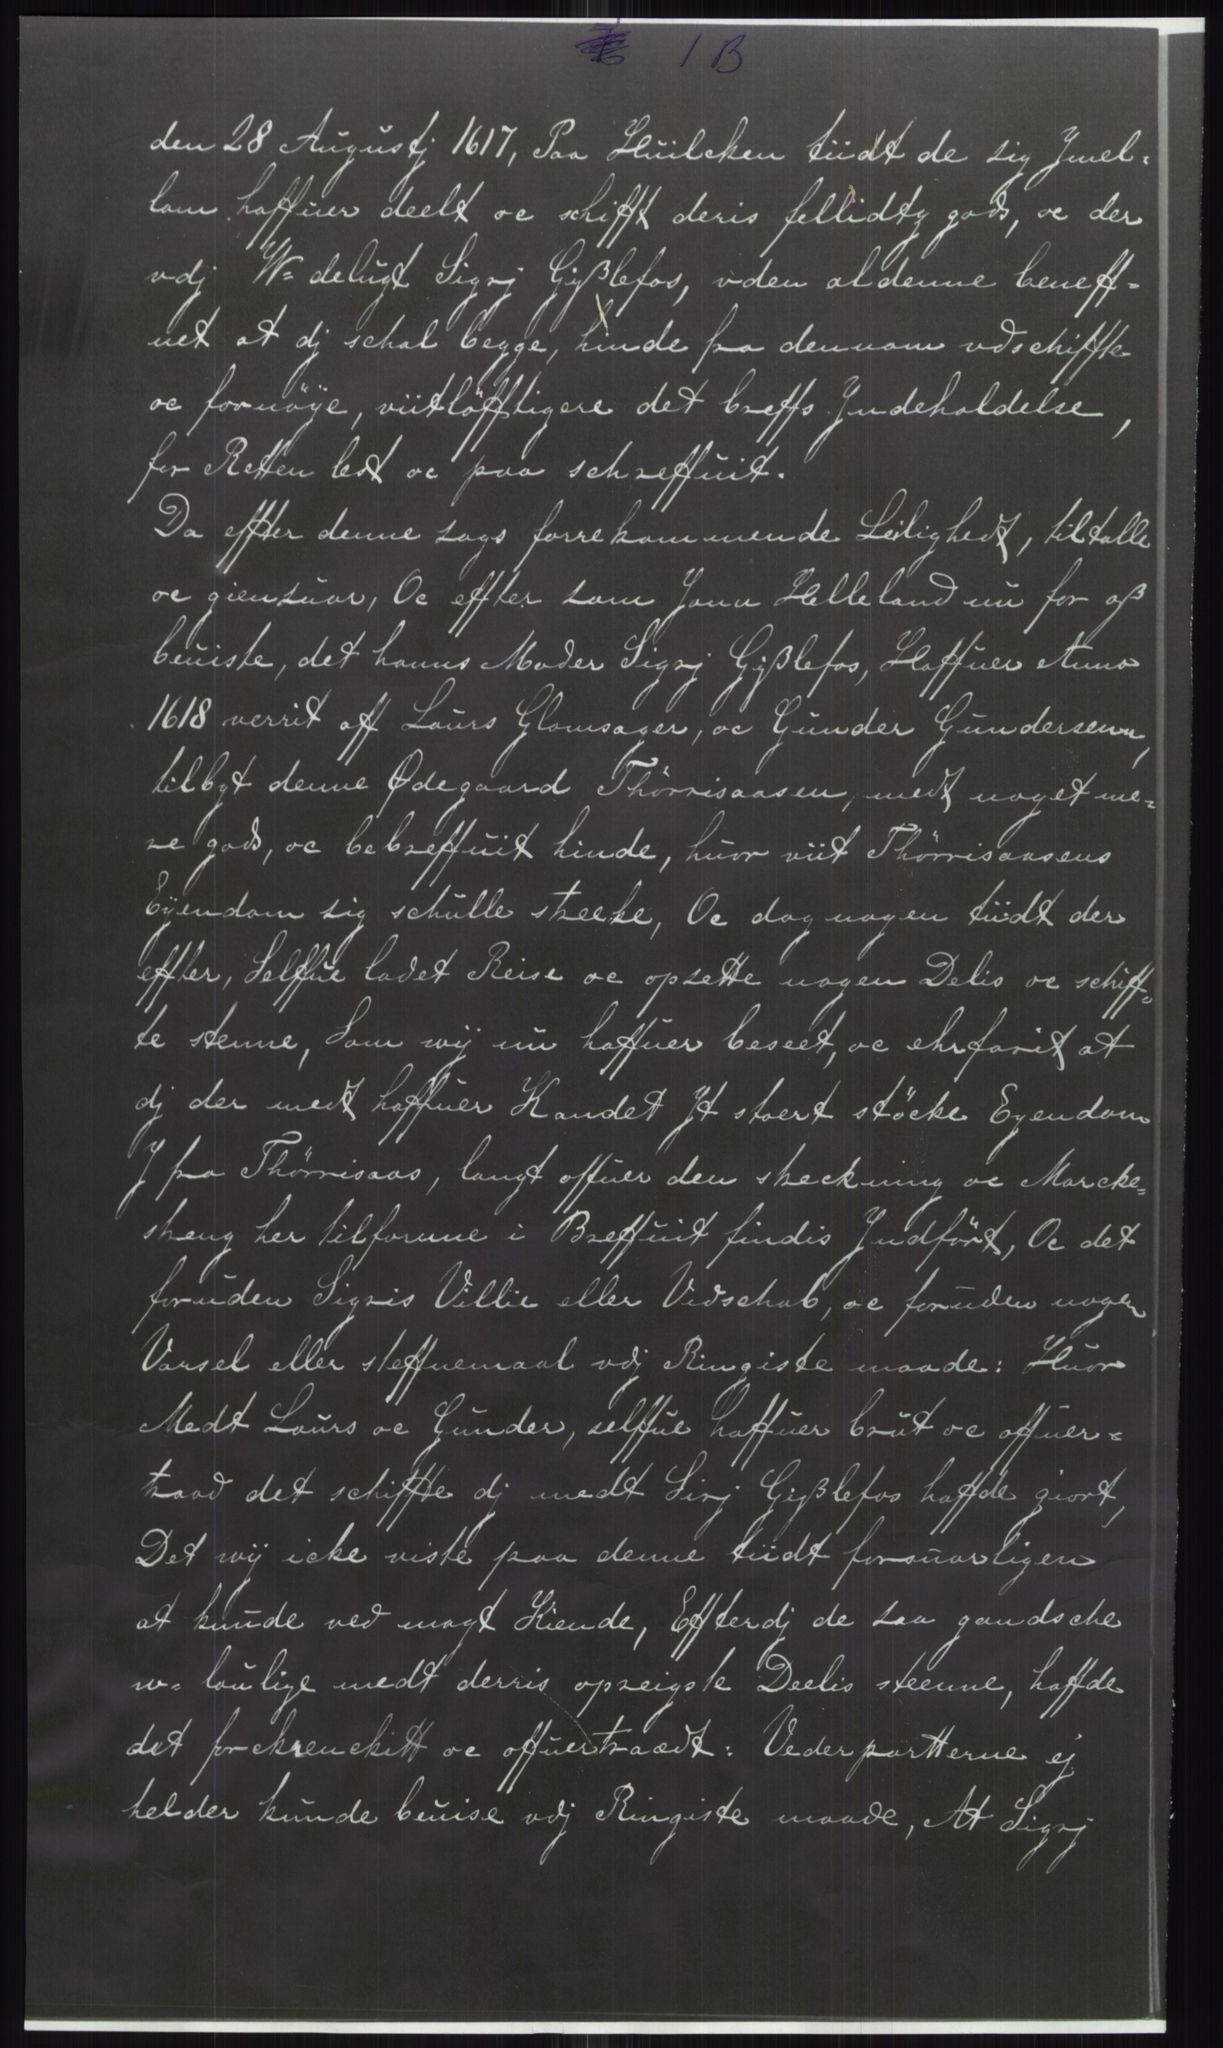 1 B
den 28 Augustj 1617, Paa Huilcken tiidt de sig Jmel-
lom haffuer deelt oc schifft deris fellidtz gods, oc der
vdj W= delugt Sigrj Gißlefos, vden al denne beneff-
net at dj schal begge, hinde fra dennom vdschiffte
oc fornöye, viitlöfftigere det breffs Jndeholdelse,
for Retten lest oc paa schreffuit.
Da effter denne sags forrekommende Leilighedt, tiltalle
oc giensuar, Oc effter som Jonn Helleland nu for oß
beuiste, det hanns Moder Sigrj Gißlefos, Haffuer Anno
1618 verrit aff Laurs Glomsager, oc Gunder Gundersenn,
tilbyt denne Ødegaard Thörrisaasen, medt noget me-
re gods, oc bebreffuit hinde, huor viit Thörrisaasens
Eyendom sig schulle strecke, Oc dog nogen tiidt der
effter, Selffue ladet Reise oc opsette nogen Delis oc schiff-
te stenne, Som wij nu haffuer beseet, oc ehrfarit at
dj der medt haffuer Kandet Jt stoert stöcke Eyendom
J fra Thörrisaas, langt offuer den streckning oc Marcke-
streng her tilforne i Breffuit findis Jndfört, Oc det
foruden Sigris Villie eller Vidschab, oc foruden nogen
Varsel eller steffnemaal vdj Ringiste maade: Huor
Medt Laurs oc Gunder, selffue haffuer brut oc offuer-
traad det schiffte dj medt Sirj Gißlefos haffde giort,
Det wij icke viste paa denne tiidt forsuarligen
at kunde ved magt Kiende, Effterdj de saa gandsche
w= laulige medt derris opreigste Deelis steenne, haffde
det forckrenckitt oc offuertraadt: Vederpartterne ej
helder kunde beuise vdj Ringiste maade, At Sigrj